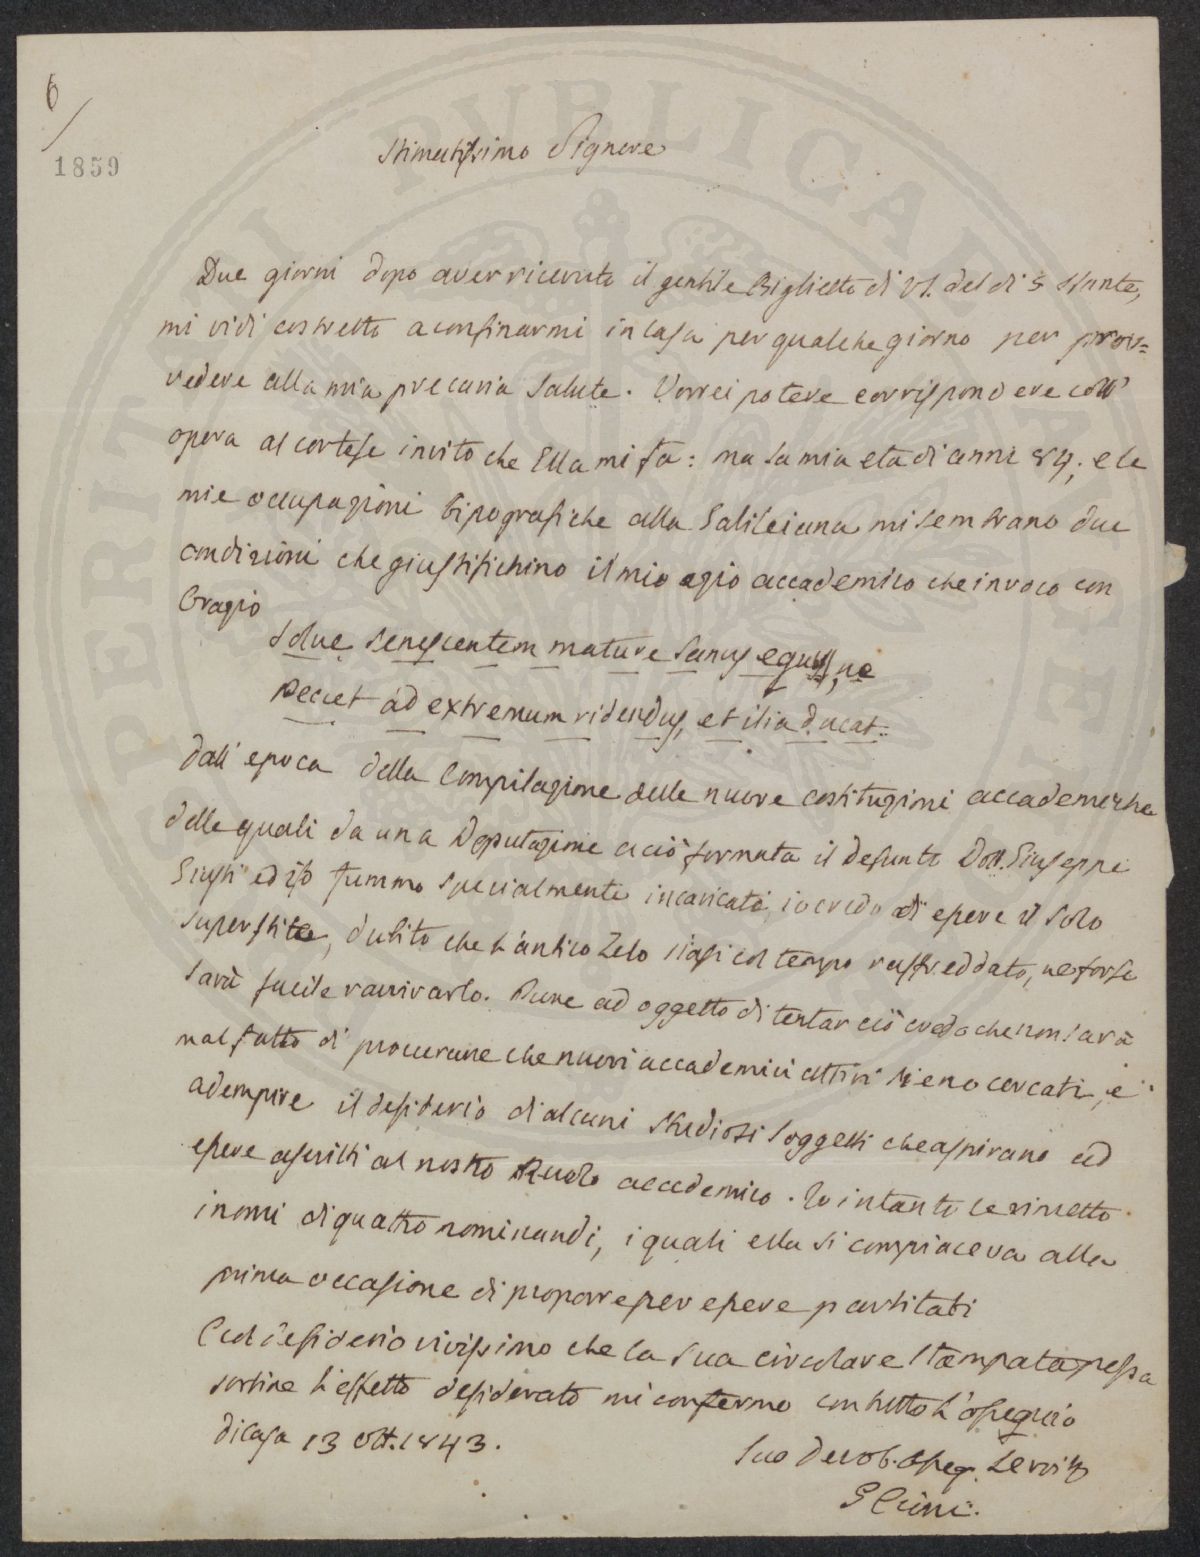 6
1859
Stimatissimo Signore
Due giorni dopo aver ricevuto il gentile Biglietto di VS. del di 5 stante,
mi vidi costretto a confinarmi in casa per qualche giorno per prov=
vedere alla mia precaria salute. Vorrei potere corrispondere coll'
opera al cortese invito che Ella mi fa: ma la mia eta di anni 84, e le
mie occupazioni tipografiche alla Galileiana mi sembrano due
condizioni che giustifichino il mio agio accademico che invoco con
Orazio
Solve senescentem mature sanus equum, ne
Peccet ad extremum ridendus, et ilia ducat.
Dall'epoca della Compilazione delle nuove costituzioni accademiche
delle quali da una Deputazione a ciò formata il defunto Dott. Giuseppe
Giusti ed io fummo specialmente incaricati, io credo di essere il solo
superstite, dubito che l'antico zelo siasi col tempo raffreddato, ne forse
sarà facile ravvivarlo. Pure ad oggetto di tentar ciò credo che non sarà
mal fatto di procurare che nuovi accademici attivi sieno cercati, e
adempire il desiderio di alcuni studiosi soggetti che aspirano ad
essere ascritti al nostro Ruolo accademico. Io intanto le rimetto
i nomi di quattro nominandi, i quali ella si compiaceva alla
prima occasione di proporre per essere partitati
Col desiderio vivissimo che la sua circolare stampata possa
sortire l'effetto desiderato mi confermo con tutto l'ossequio
di casa 13 Ott. 1843.
Suo Devot. Osseq. Servit
G Cioni.
PERITATI PVBLICAE